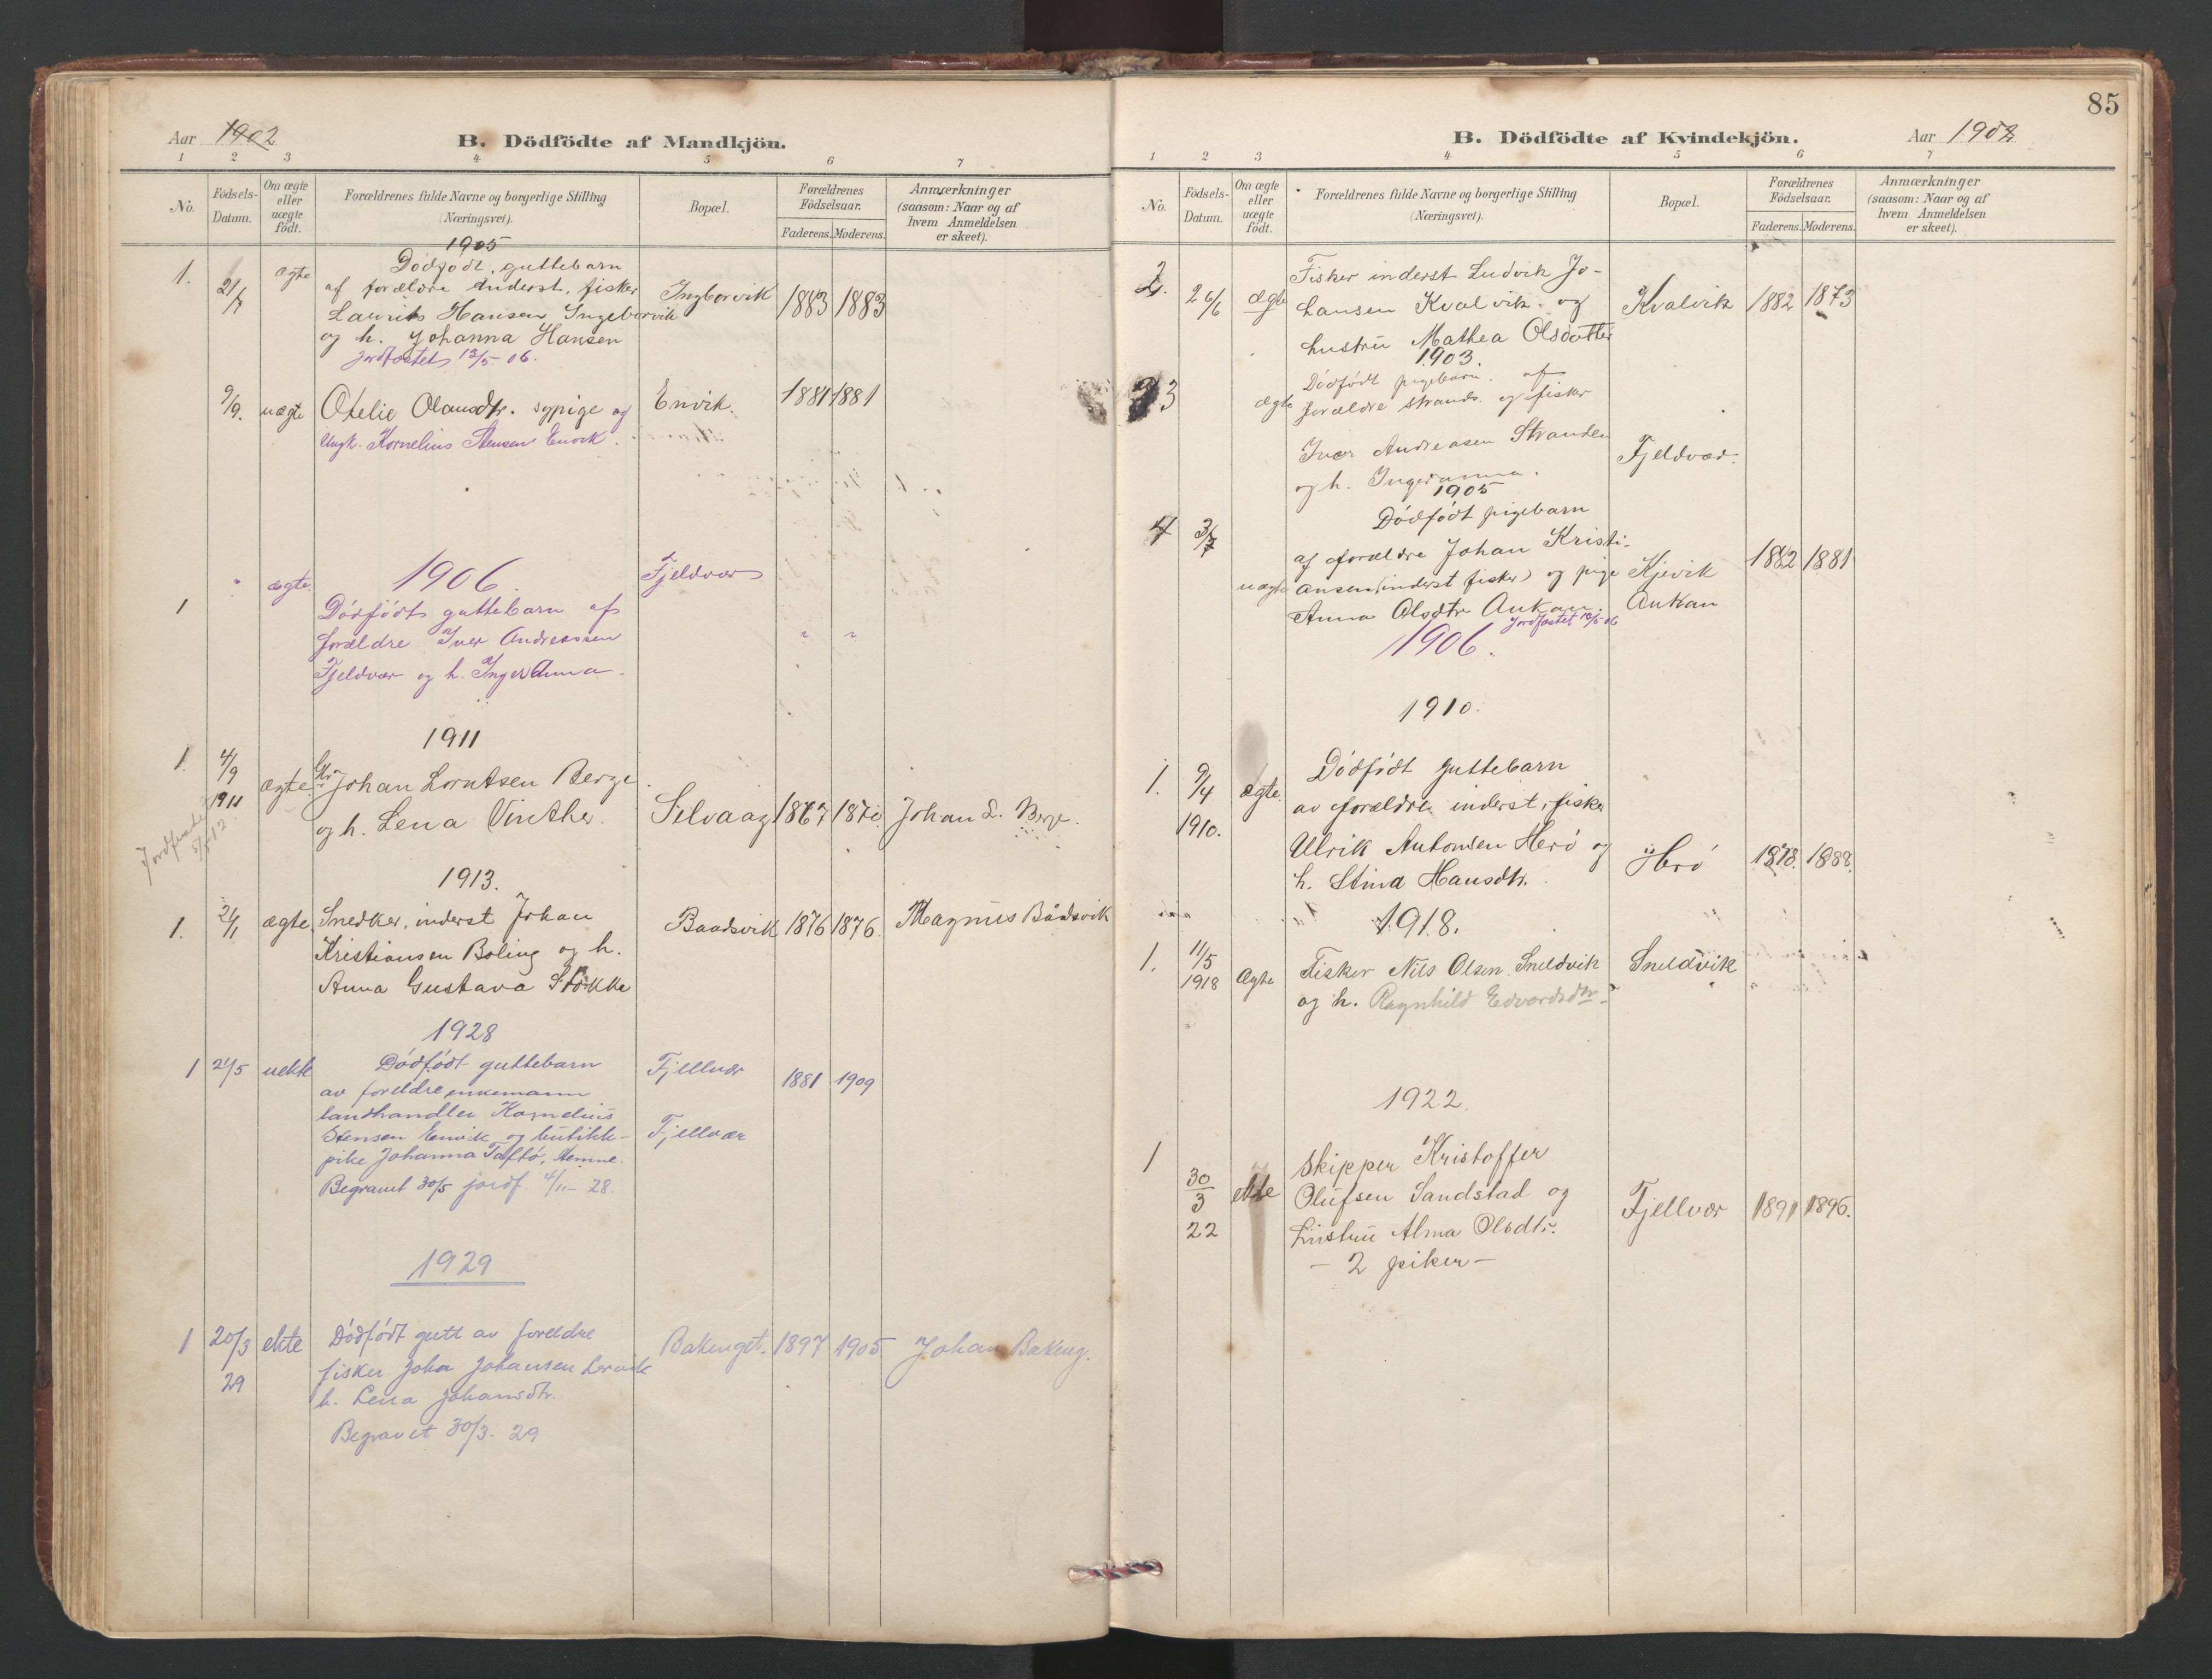 Aar 1902
B. Dödfödte af Mandkjön.
1 2 3 4 5 6 7
No.
Födsels-
Datum.
Om ægte
eller
uægte
födt.
Forældrenes fulde Navne og borgerlige Stilling
(Næringsvei).
Bopæl.
Forældrenes
Födselsaar.
Faderens. Moderens.
Anmærkninger
(saasom: Naar og af
hvem Anmeldelsen
er skeet).
1905
1. 21/7 ægte Dødfødt, guttebarn
af forældre Inderst, fisker Ingborvik 1883 1883
Laurits Hansen Ingeborvik
og h. Johanna Hansen
Jordfæstet 13/5 06.
9/9. uægte Otelie Olausdtr. sypige og Envik. 1881 1881
Ungk. Kornelius Stensen Envik.
1906.
1 " ægte. Dødfødt guttebarn af Fjeldvær
forældre Iver Andreassen " "
Fjeldvær og h. Inger Anna.
1911
1. 4/9 1911 ægte. Johan Lorntsen Berge
og h. Lena Vinther. Selvaag 1867 1870. Johan L. Berge.
1913.
1. 21/1 ægte. Snedker, inderst Johan Baadsvik 1876 1876. Magnus Bådsvik
Kristiansen Boling og h.
Anna Gustava Stokke
1928
1 21/5 uekte Dødfødt guttebarn Fjellvær 1881 1909
av foreldre enkemann
landhandler Kornelius
Stensen Envik og butikk- Fjellvær
pike Johanna Taftø, Hemne.
Begravet 30/5 jordf. 4/11 - 28.
1929
1 20/3 29 ekte Dødfødt gutt av foreldre Bakenget. 1897 1905 Johan Bakeng.
fisker Johan Johansen Lervik
h. Lena Johansdtr.
Begravet 30/3. 29
85
B. Dödfödte af Kvindekjön.
Aar 1902
1 2 3 4 5 6 7
No.
Födsels-
Datum.
Om ægte
eller
uægte
födt.
Forældrenes fulde Navne og borgerlige Stilling
(Næringsvei).
Bopæl.
Forældrenes
Födselsaar.
Faderens. Moderens.
Anmærkninger
(saasom: Naar og af
hvem Anmeldelsen
er skeet).
2. 26/6 ægte Fisker inderst Ludvik Jo-
hansen Kvalvik og Kvalvik 1882 1873
hustru Mathea Olsdatter
1903.
3 ægte Dødfødt pigebarn. af
forældre strands. og fisker
Iver Andreasen Stranden
og h. Ingeranna. Fjeldvær.
1905
4 3/7 Dødfødt pigebarn
af forældre Johan Kristi- 1882 1881
uægte ansen (inderst fisker) og pige Kjevik
Anna Olsdtr Aukan. Aukan
Jordfæstet 10/5 06
1906.
1910.
1. 9/4 1910. ægte. Dødfødt guttebarn
av forældre inderst, fisker
Ulrik Antonsen Herø og Herø 1878. 1888.
h. Stina Hansdtr.
1918.
1. 11/5 1918 Ægte Fisker Nils Olsen Sneldvik Sneldvik
og h. Ragnhild Edvardsdtr.
1922.
1 30/3 22 ekte Skipper Kristoffer
Olufsen Sandstad og Fjellvær 1891 1896.
hustru Alma Olsdtr.
- 2 piker -